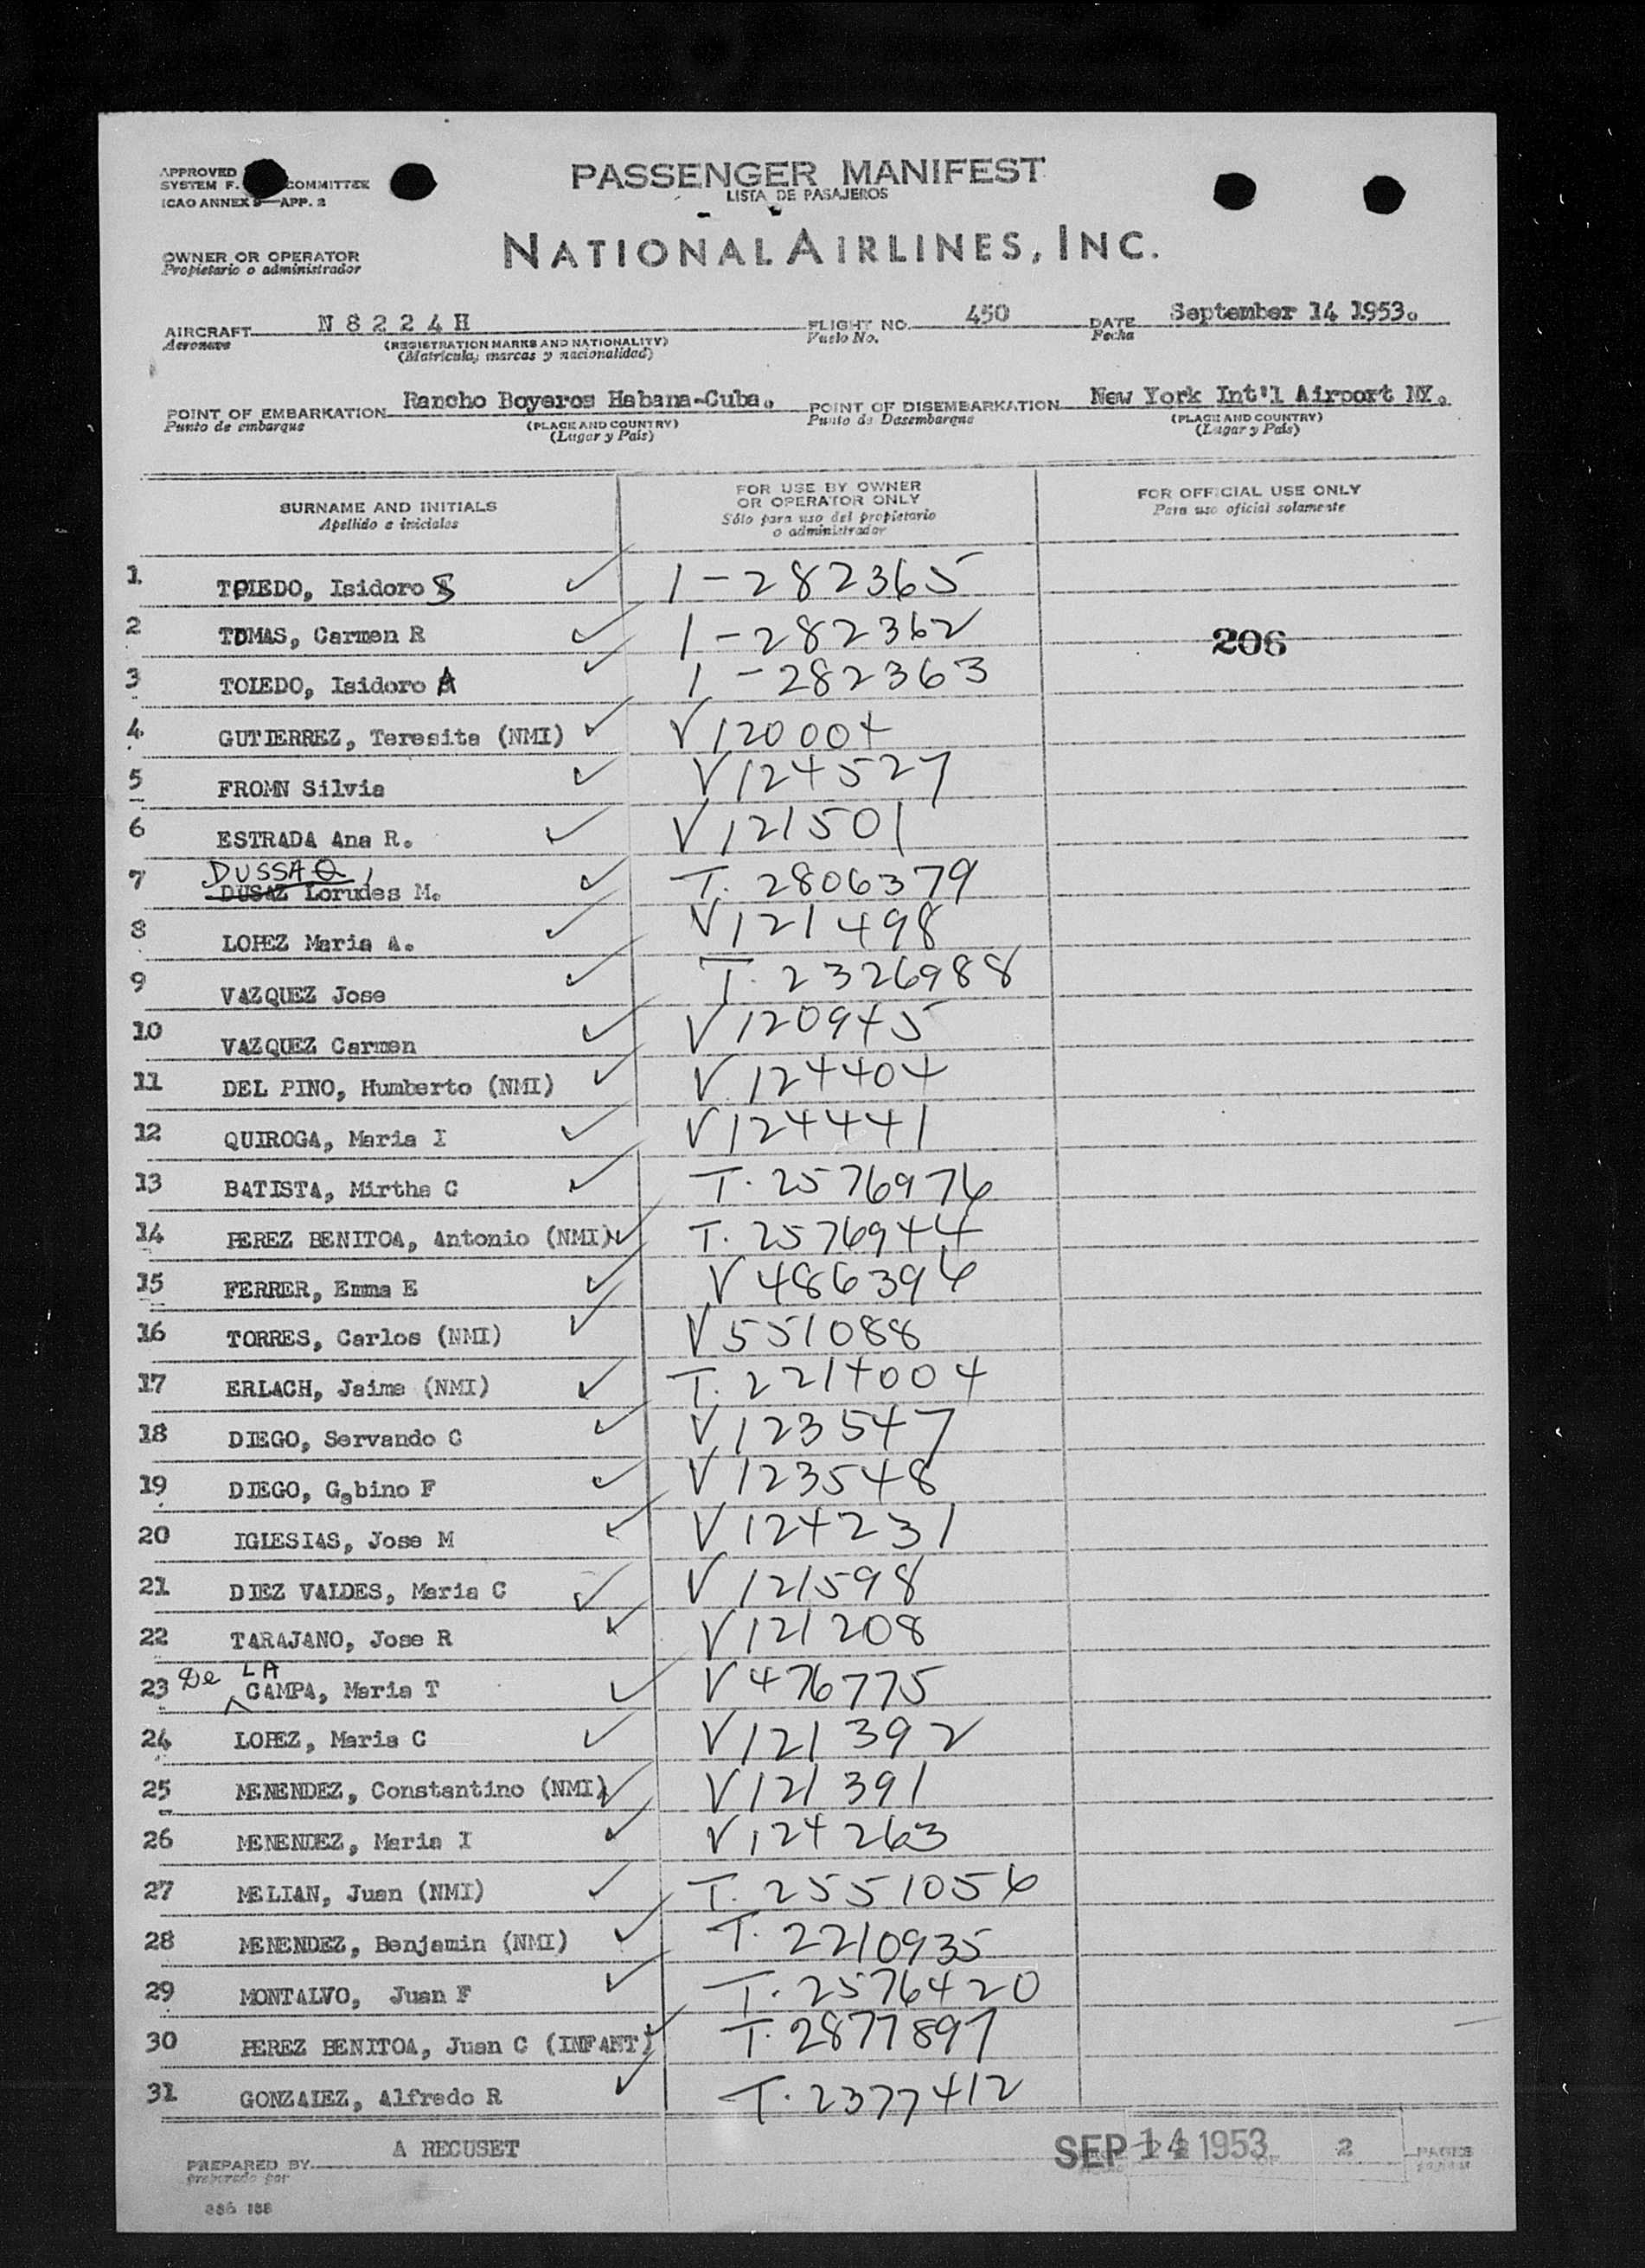 APPROVED
SYSTEM F. COMMITTEE
ICAO ANNEX 9—APP. 2
PASSENGER MANIFEST
LISTA DE PASAJEROS
NATIONAL AIRLINES, INC.
OWNER OR OPERATOR
Propietario o administrador
AIRCRAFT N 8 2 2 4 H FLIGHT NO. 450 DATE September 14 1953.
Aeronave (REGISTRATION MARKS AND NATIONALITY) Vuelo No. Fecha
(Matrícula, marcas y nacionalidad)
POINT OF EMBARKATION Rancho Boyeros Habana-Cuba. POINT OF DISEMBARKATION New York Int'l Airport NY.
Punto de embarque (PLACE AND COUNTRY) Punto de Desembarque (PLACE AND COUNTRY)
(Lugar y País) (Lugar y País)
SURNAME AND INITIALS FOR USE BY OWNER OR OPERATOR ONLY FOR OFFICIAL USE ONLY
Apellido e iniciales Sólo para uso del propietario o administrador Para uso oficial solamente
1 TOLEDO, Isidoro S 1-282365
2 TOMAS, Carmen R 1-282362 206
3 TOLEDO, Isidoro A 1-282363
4 GUTIERREZ, Teresita (NMI) V 120004
5 FROMN Silvia V 124527
6 ESTRADA Ana R. V 121501
DUSSAQ,
7 DUSAZ Lorudes M. T. 2806379
8 LOPEZ Maria A. V 121498
9 VAZQUEZ Jose T. 2326988
10 VAZQUEZ Carmen V 120945
11 DEL PINO, Humberto (NMI) V 124404
12 QUIROGA, Maria I V 124441
13 BATISTA, Mirtha C T. 2576976
14 PEREZ BENITOA, Antonio (NMI) T. 2576944
15 FERRER, Emma E V 486396
16 TORRES, Carlos (NMI) V 551088
17 ERLACH, Jaime (NMI) T. 2214004
18 DIEGO, Servando C V 123547
19 DIEGO, Gabino F V 123548
20 IGLESIAS, Jose M V 124231
21 DIEZ VALDES, Maria C V 121598
22 TARAJANO, Jose R V 121208
23 De LA CAMPA, Maria T V 476775
24 LOPEZ, Maria C V 121392
25 MENENDEZ, Constantino (NMI) V 121391
26 MENENDEZ, Maria I V 124263
27 MELIAN, Juan (NMI) T. 2551056
28 MENENDEZ, Benjamin (NMI) T. 2210935
29 MONTALVO, Juan F T. 2576420
30 PEREZ BENITOA, Juan C (INFANT) T. 2877897
31 GONZALEZ, Alfredo R T. 2377412
PREPARED BY A RECUSET SEP 14 1953 OF 2 PAGES
preparado por